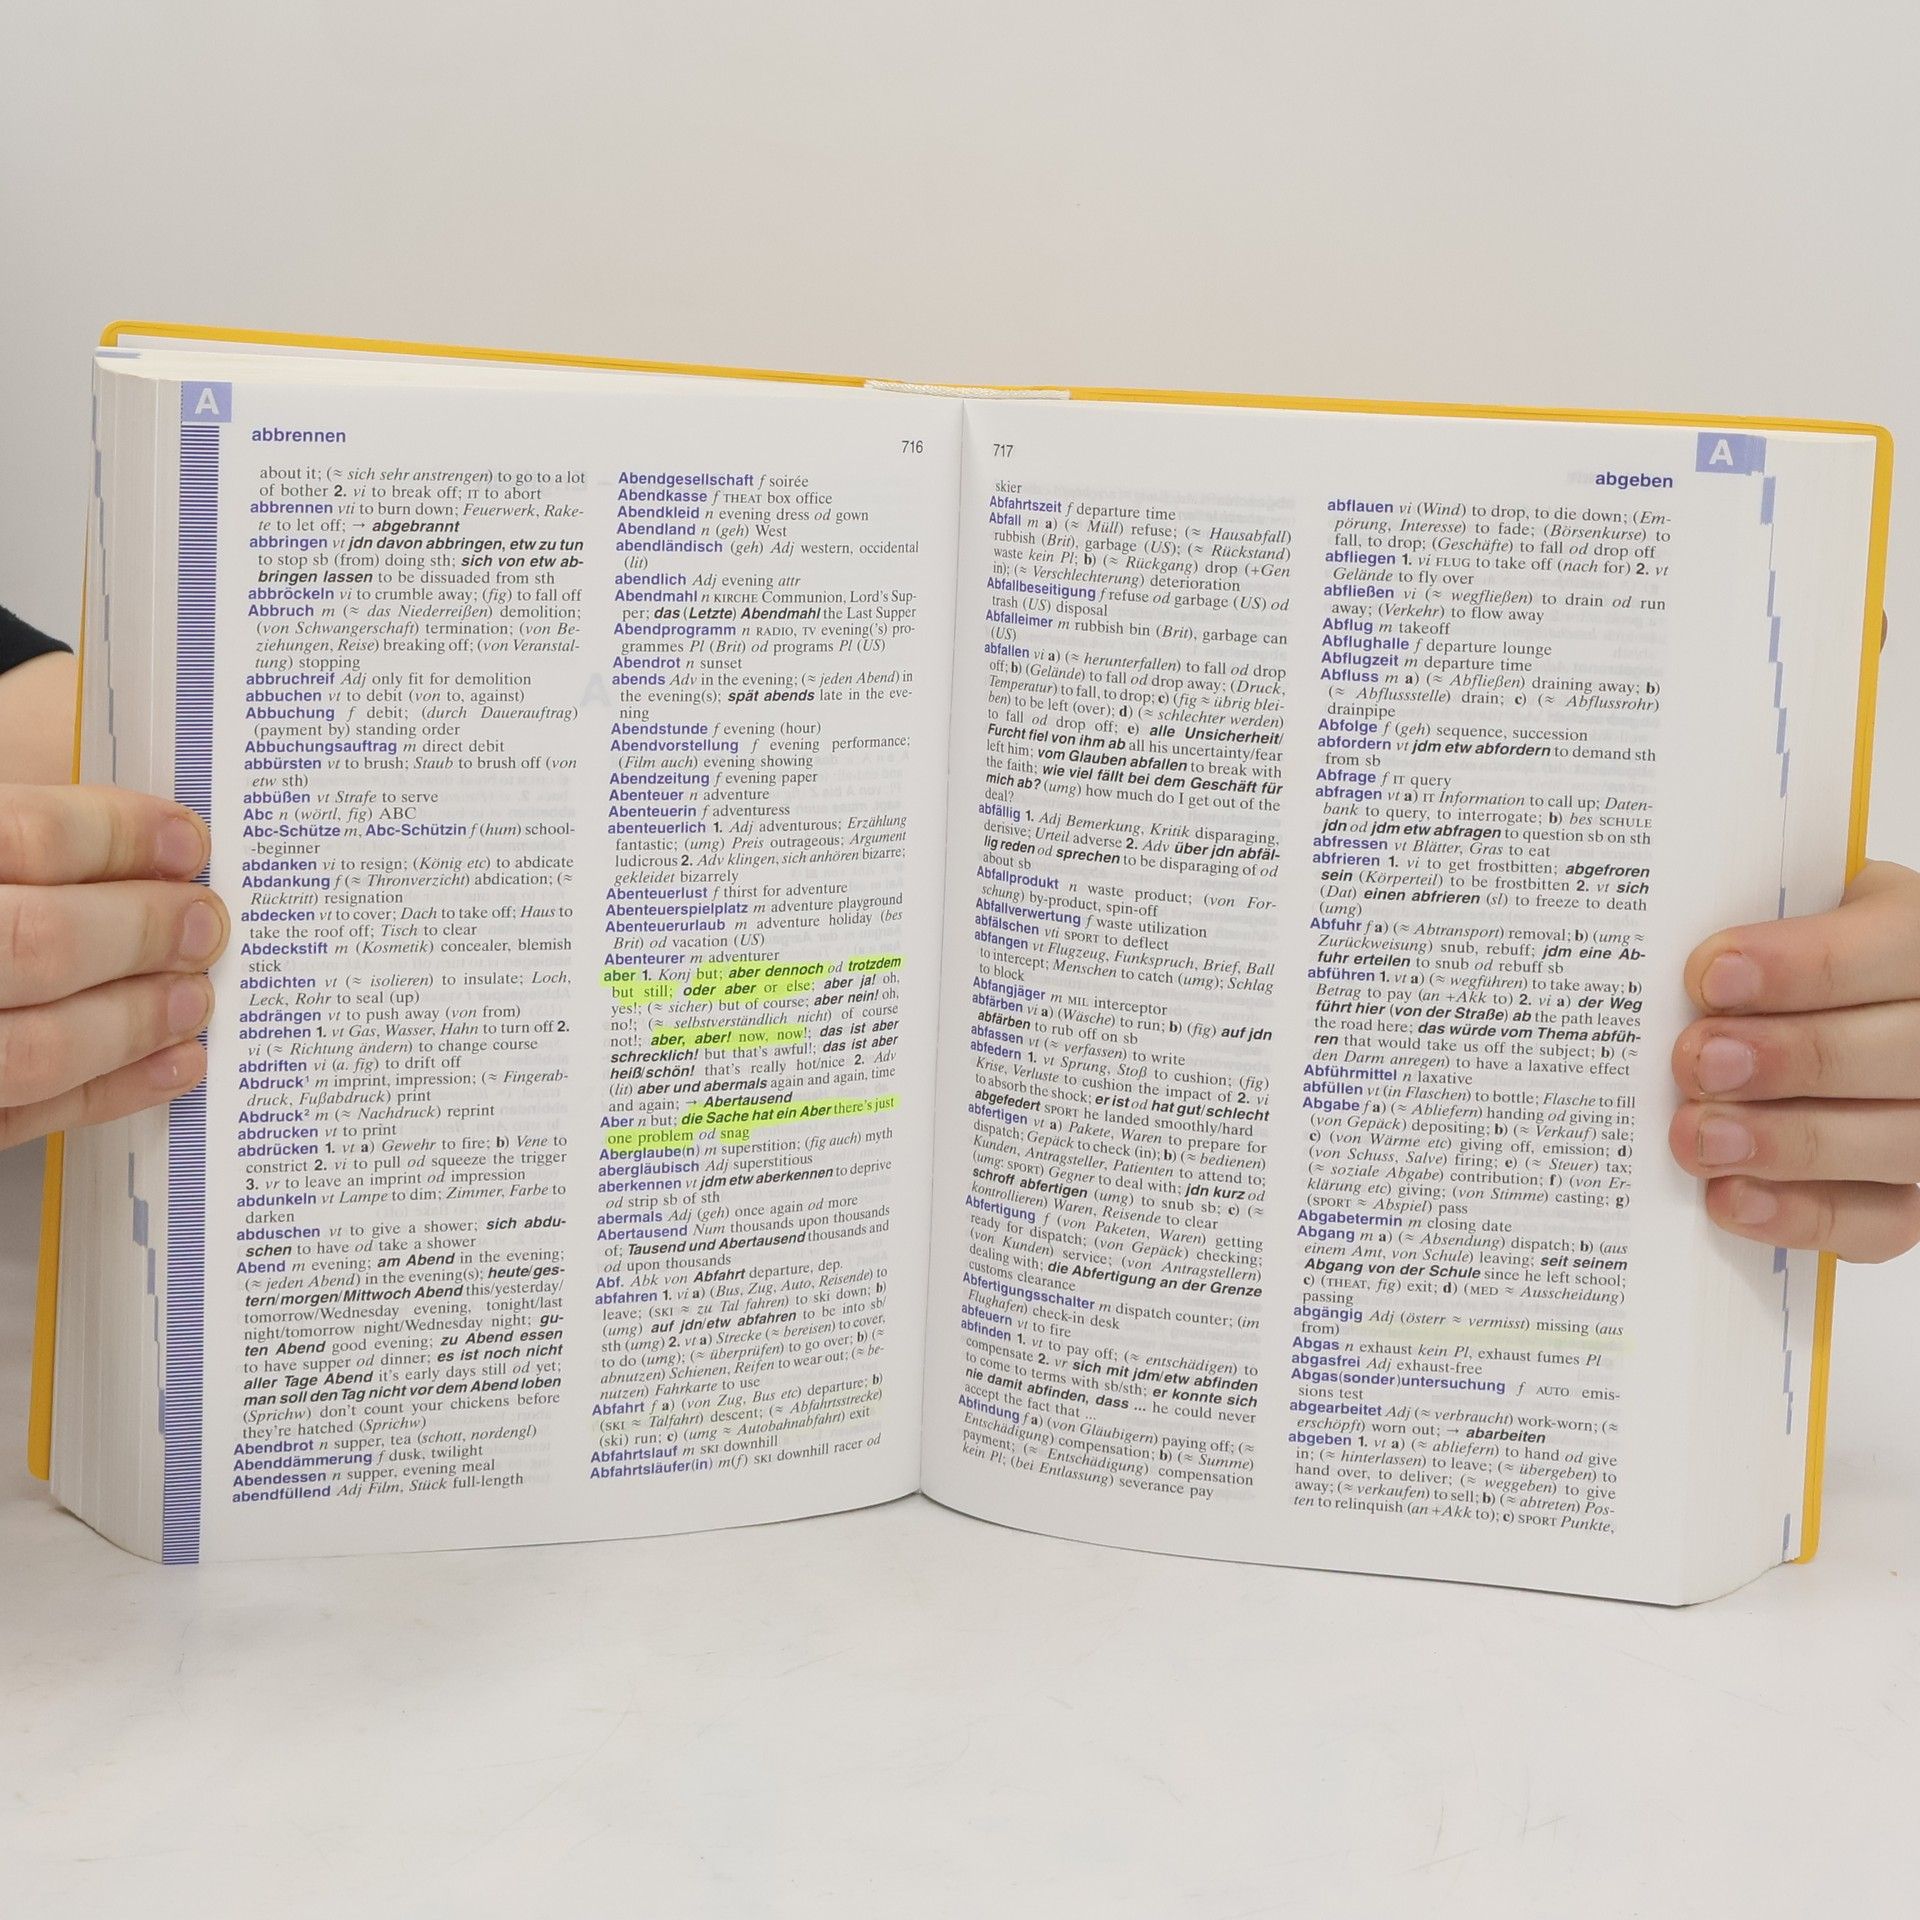 A
abbrennen
716
about it; (≈ sich sehr anstrengen) to go to a lot
of bother 2. vi to break off; IT to abort
abbrennen vti to burn down; Feuerwerk, Rake-
te to let off; → abgebrannt
abbringen vt jdn davon abbringen, etw zu tun
to stop sb (from) doing sth; sich von etw ab-
bringen lassen to be dissuaded from sth
abbröckeln vi to crumble away; (fig) to fall off
Abbruch m (≈ das Niederreißen) demolition;
(von Schwangerschaft) termination; (von Be-
ziehungen, Reise) breaking off; (von Veranstal-
tung) stopping
abbruchreif Adj only fit for demolition
abbuchen vt to debit (von to, against)
Abbuchung f debit; (durch Dauerauftrag)
(payment by) standing order
Abbuchungsauftrag m direct debit
abbürsten vt to brush; Staub to brush off (von
etw sth)
abbüßen vt Strafe to serve
Abc n (wörtl, fig) ABC
Abc-Schütze m, Abc-Schützin f (hum) school-
-beginner
abdanken vi to resign; (König etc) to abdicate
Abdankung f (≈ Thronverzicht) abdication; (≈
Rücktritt) resignation
abdecken vt to cover; Dach to take off; Haus to
take the roof off; Tisch to clear
Abdeckstift m (Kosmetik) concealer, blemish
stick
abdichten vt (≈ isolieren) to insulate; Loch,
Leck, Rohr to seal (up)
abdrängen vt to push away (von from)
abdrehen 1. vt Gas, Wasser, Hahn to turn off 2.
vi (≈ Richtung ändern) to change course
abdriften vi (a. fig) to drift off
Abdruck¹ m imprint, impression; (≈ Fingerab-
druck, Fußabdruck) print
Abdruck² m (≈ Nachdruck) reprint
abdrucken vt to print
abdrücken 1. vt a) Gewehr to fire; b) Vene to
constrict 2. vi to pull od squeeze the trigger
3. vr to leave an imprint od impression
abdunkeln vt Lampe to dim; Zimmer, Farbe to
darken
abduschen vt to give a shower; sich abdu-
schen to have od take a shower
Abend m evening; am Abend in the evening;
(≈ jeden Abend) in the evening(s); heute/ges-
tern/morgen/Mittwoch Abend this/yesterday/
tomorrow/Wednesday evening, tonight/last
night/tomorrow night/Wednesday night; gu-
ten Abend good evening; zu Abend essen
to have supper od dinner; es ist noch nicht
aller Tage Abend it's early days still od yet;
man soll den Tag nicht vor dem Abend loben
(Sprichw) don't count your chickens before
they're hatched (Sprichw)
Abendbrot n supper, tea (schott, nordengl)
Abenddämmerung f dusk, twilight
Abendessen n supper, evening meal
abendfüllend Adj Film, Stück full-length
Abendgesellschaft f soirée
Abendkasse f THEAT box office
Abendkleid n evening dress od gown
Abendland n (geh) West
abendländisch (geh) Adj western, occidental
(lit)
abendlich Adj evening attr
Abendmahl n KIRCHE Communion, Lord's Sup-
per; das (Letzte) Abendmahl the Last Supper
Abendprogramm n RADIO, TV evening('s) pro-
grammes Pl (Brit) od programs Pl (US)
Abendrot n sunset
abends Adv in the evening; (≈ jeden Abend) in
the evening(s); spät abends late in the eve-
ning
Abendstunde f evening (hour)
Abendvorstellung f evening performance;
(Film auch) evening showing
Abendzeitung f evening paper
Abenteuer n adventure
Abenteuerin f adventuress
abenteuerlich 1. Adj adventurous; Erzählung
fantastic; (umg) Preis outrageous; Argument
ludicrous 2. Adv klingen, sich anhören bizarre;
gekleidet bizarrely
Abenteuerlust f thirst for adventure
Abenteuerspielplatz m adventure playground
Abenteuerurlaub m adventure holiday (bes
Brit) od vacation (US)
Abenteurer m adventurer
aber 1. Konj but; aber dennoch od trotzdem
but still; oder aber or else; aber ja! oh,
yes!; (≈ sicher) but of course; aber nein! oh,
no!; (≈ selbstverständlich nicht) of course
not!; aber, aber! now, now!; das ist aber
schrecklich! but that's awful!; das ist aber
heiß/schön! that's really hot/nice 2. Adv
(lit) aber und abermals again and again, time
and again; → Abertausend
Aber n but; die Sache hat ein Aber there's just
one problem od snag
Aberglaube(n) m superstition; (fig auch) myth
abergläubisch Adj superstitious
aberkennen vt jdm etw aberkennen to deprive
od strip sb of sth
abermals Adj (geh) once again od more
Abertausend Num thousands upon thousands
of; Tausend und Abertausend thousands and
od upon thousands
Abf. Abk von Abfahrt departure, dep.
abfahren 1. vi a) (Bus, Zug, Auto, Reisende) to
leave; (SKI ≈ zu Tal fahren) to ski down; b)
(umg) auf jdn/etw abfahren to be into sb/
sth (umg) 2. vt a) Strecke (≈ bereisen) to cover,
to do (umg); (≈ überprüfen) to go over; b) (≈
abnutzen) Schienen, Reifen to wear out; (≈ be-
nutzen) Fahrkarte to use
Abfahrt f a) (von Zug, Bus etc) departure; b)
(SKI ≈ Talfahrt) descent; (≈ Abfahrtsstrecke)
(ski) run; c) (umg ≈ Autobahnabfahrt) exit
Abfahrtslauf m SKI downhill
Abfahrtsläufer(in) m(f) SKI downhill racer od
717
abgeben
A
skier
Abfahrtszeit f departure time
Abfall m a) (≈ Müll) refuse; (≈ Hausabfall)
rubbish (Brit), garbage (US); (≈ Rückstand)
waste kein Pl; b) (≈ Rückgang) drop (+Gen
in); (≈ Verschlechterung) deterioration
Abfallbeseitigung f refuse od garbage (US) od
trash (US) disposal
Abfalleimer m rubbish bin (Brit), garbage can
(US)
abfallen vi a) (≈ herunterfallen) to fall od drop
off; b) (Gelände) to fall od drop away; (Druck,
Temperatur) to fall, to drop; c) (fig ≈ übrig blei-
ben) to be left (over); d) (≈ schlechter werden)
to fall od drop off; e) alle Unsicherheit/
Furcht fiel von ihm ab all his uncertainty/fear
left him; vom Glauben abfallen to break with
the faith; wie viel fällt bei dem Geschäft für
mich ab? (umg) how much do I get out of the
deal?
abfällig 1. Adj Bemerkung, Kritik disparaging,
derisive; Urteil adverse 2. Adv über jdn abfäl-
lig reden od sprechen to be disparaging of od
about sb
Abfallprodukt n waste product; (von For-
schung) by-product, spin-off
Abfallverwertung f waste utilization
abfälschen vti SPORT to deflect
abfangen vt Flugzeug, Funkspruch, Brief, Ball
to intercept; Menschen to catch (umg); Schlag
to block
Abfangjäger m MIL interceptor
abfärben vi a) (Wäsche) to run; b) (fig) auf jdn
abfärben to rub off on sb
abfassen vt (≈ verfassen) to write
abfedern 1. vt Sprung, Stoß to cushion; (fig)
Krise, Verluste to cushion the impact of 2. vi
to absorb the shock; er ist od hat gut/schlecht
abgefedert SPORT he landed smoothly/hard
abfertigen vt a) Pakete, Waren to prepare for
dispatch; Gepäck to check (in); b) (≈ bedienen)
Kunden, Antragsteller, Patienten to attend to;
(umg: SPORT) Gegner to deal with; jdn kurz od
schroff abfertigen (umg) to snub sb; c) (≈
kontrollieren) Waren, Reisende to clear
Abfertigung f (von Paketen, Waren) getting
ready for dispatch; (von Gepäck) checking;
(von Kunden) service; (von Antragstellern)
dealing with; die Abfertigung an der Grenze
customs clearance
Abfertigungsschalter m dispatch counter; (im
Flughafen) check-in desk
abfeuern vt to fire
abfinden 1. vt to pay off; (≈ entschädigen) to
compensate 2. vr sich mit jdm/etw abfinden
to come to terms with sb/sth; er konnte sich
nie damit abfinden, dass ... he could never
accept the fact that ...
Abfindung f a) (von Gläubigern) paying off; (≈
Entschädigung) compensation; b) (≈ Summe)
payment; (≈ Entschädigung) compensation
kein Pl; (bei Entlassung) severance pay
abflauen vi (Wind) to drop, to die down; (Em-
pörung, Interesse) to fade; (Börsenkurse) to
fall, to drop; (Geschäfte) to fall od drop off
abfliegen 1. vi FLUG to take off (nach for) 2. vt
Gelände to fly over
abfließen vi (≈ wegfließen) to drain od run
away; (Verkehr) to flow away
Abflug m takeoff
Abflughalle f departure lounge
Abflugzeit m departure time
Abfluss m a) (≈ Abfließen) draining away; b)
(≈ Abflussstelle) drain; c) (≈ Abflussrohr)
drainpipe
Abfolge f (geh) sequence, succession
abfordern vt jdm etw abfordern to demand sth
from sb
Abfrage f IT query
abfragen vt a) IT Information to call up; Daten-
bank to query, to interrogate; b) bes SCHULE
jdn od jdm etw abfragen to question sb on sth
abfressen vt Blätter, Gras to eat
abfrieren 1. vi to get frostbitten; abgefroren
sein (Körperteil) to be frostbitten 2. vt sich
(Dat) einen abfrieren (sl) to freeze to death
(umg)
Abfuhr f a) (≈ Abtransport) removal; b) (umg ≈
Zurückweisung) snub, rebuff; jdm eine Ab-
fuhr erteilen to snub od rebuff sb
abführen 1. vt a) (≈ wegführen) to take away; b)
Betrag to pay (an +Akk to) 2. vi a) der Weg
führt hier (von der Straße) ab the path leaves
the road here; das würde vom Thema abfüh-
ren that would take us off the subject; b) (≈
den Darm anregen) to have a laxative effect
Abführmittel n laxative
abfüllen vt (in Flaschen) to bottle; Flasche to fill
Abgabe f a) (≈ Abliefern) handing od giving in;
(von Gepäck) depositing; b) (≈ Verkauf) sale;
c) (von Wärme etc) giving off, emission; d)
(von Schuss, Salve) firing; e) (≈ Steuer) tax;
(≈ soziale Abgabe) contribution; f) (von Er-
klärung etc) giving; (von Stimme) casting; g)
(SPORT ≈ Abspiel) pass
Abgabetermin m closing date
Abgang m a) (≈ Absendung) dispatch; b) (aus
einem Amt, von Schule) leaving; seit seinem
Abgang von der Schule since he left school;
c) (THEAT, fig) exit; d) (MED ≈ Ausscheidung)
passing
abgängig Adj (österr ≈ vermisst) missing (aus
from)
Abgas n exhaust kein Pl, exhaust fumes Pl
abgasfrei Adj exhaust-free
Abgas(sonder)untersuchung f AUTO emis-
sions test
abgearbeitet Adj (≈ verbraucht) work-worn; (≈
erschöpft) worn out; → abarbeiten
abgeben 1. vt a) (≈ abliefern) to hand od give
in; (≈ hinterlassen) to leave; (≈ übergeben) to
hand over, to deliver; (≈ weggeben) to give
away; (≈ verkaufen) to sell; b) (≈ abtreten) Pos-
ten to relinquish (an +Akk to); c) SPORT Punkte,